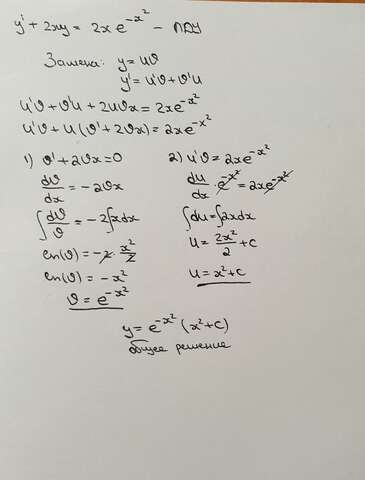 y' + 2xy = 2x e^{-x^2} - ЛДУ
Замена: y = uϑ
y' = u'ϑ + ϑ'u
u'ϑ + ϑ'u + 2uϑx = 2xe^{-x^2}
u'ϑ + u(ϑ' + 2ϑx) = 2xe^{-x^2}
1) ϑ' + 2ϑx = 0
dϑ/dx = -2ϑx
∫ dϑ/ϑ = -2∫xdx
ln(ϑ) = -2 · x^2/2
ln(ϑ) = -x^2
ϑ = e^{-x^2}
2) u'ϑ = 2xe^{-x^2}
du/dx · e^{-x^2} = 2xe^{-x^2}
∫du = ∫2xdx
u = 2x^2/2 + c
u = x^2 + c
y = e^{-x^2} (x^2 + c)
общее решение